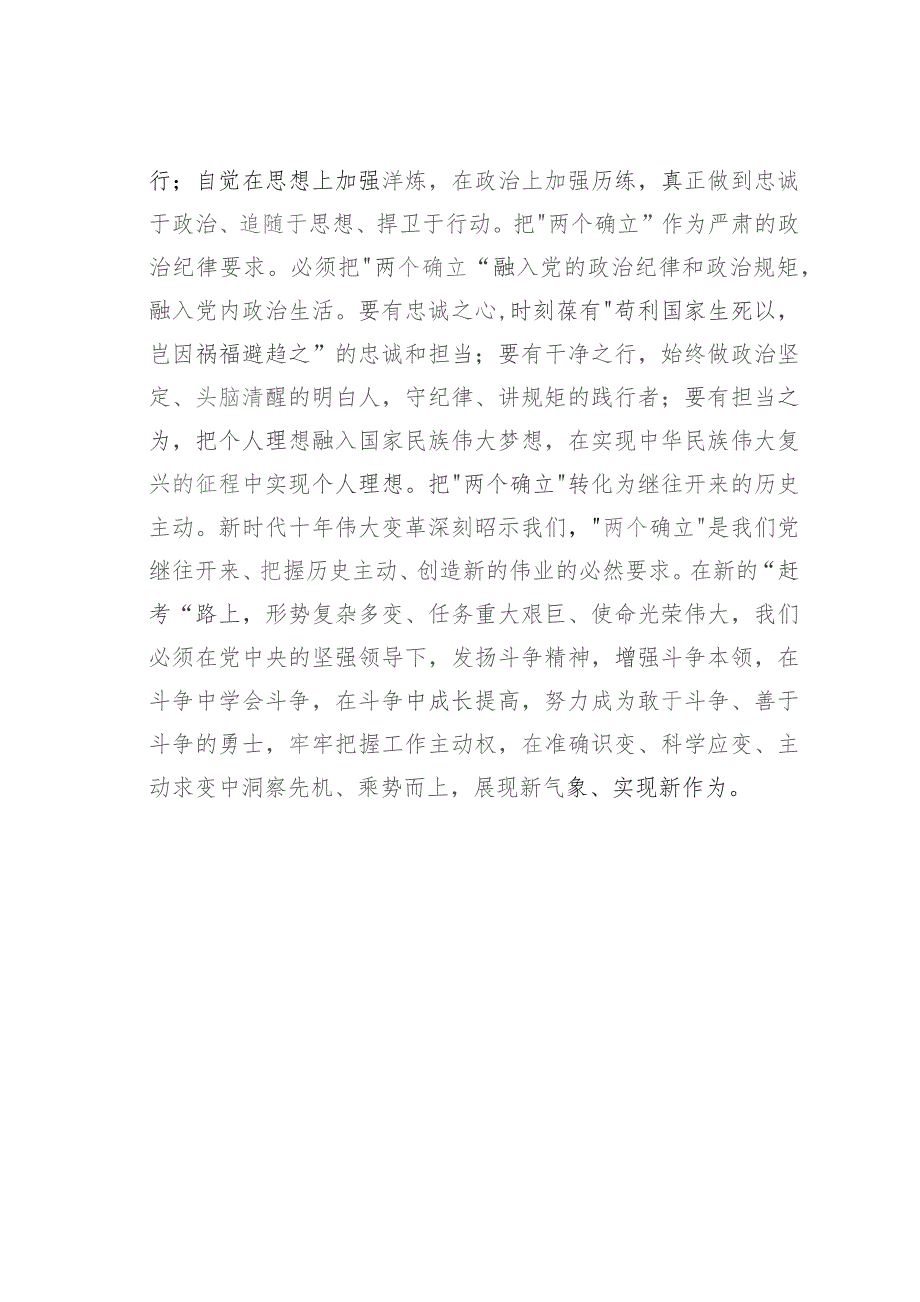 行；自觉在思想上加强洋炼，在政治上加强历练，真正做到忠诚
于政治、追随于思想、捍卫于行动。把"两个确立”作为严肃的政
治纪律要求。必须把"两个确立“融入党的政治纪律和政治规矩，
融入党内政治生活。要有忠诚之心,时刻葆有"苟利国家生死以，
岂因祸福避趋之”的忠诚和担当；要有干净之行，始终做政治坚
定、头脑清醒的明白人，守纪律、讲规矩的践行者；要有担当之
为，把个人理想融入国家民族伟大梦想，在实现中华民族伟大复
兴的征程中实现个人理想。把"两个确立"转化为继往开来的历史
主动。新时代十年伟大变革深刻昭示我们，"两个确立"是我们党
继往开来、把握历史主动、创造新的伟业的必然要求。在新的“赶
考“路上，形势复杂多变、任务重大艰巨、使命光荣伟大，我们
必须在党中央的坚强领导下，发扬斗争精神，增强斗争本领，在
斗争中学会斗争，在斗争中成长提高，努力成为敢于斗争、善于
斗争的勇士，牢牢把握工作主动权，在准确识变、科学应变、主
动求变中洞察先机、乘势而上，展现新气象、实现新作为。